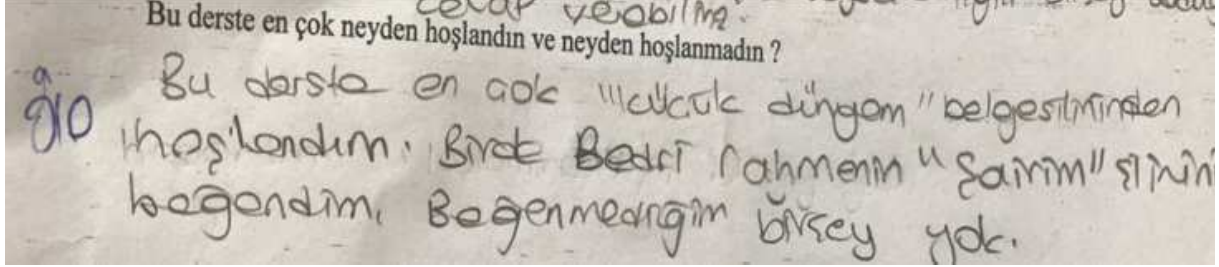 cevap verebilme.
Bu derste en çok neyden hoşlandın ve neyden hoşlanmadın ?
Bu derste en çok "küçük dünyam" belgeselinden
hoşlandım. Birde Bedri rahmenin "Şairim" şiirini
beğendim. Beğenmediğim birşey yok.